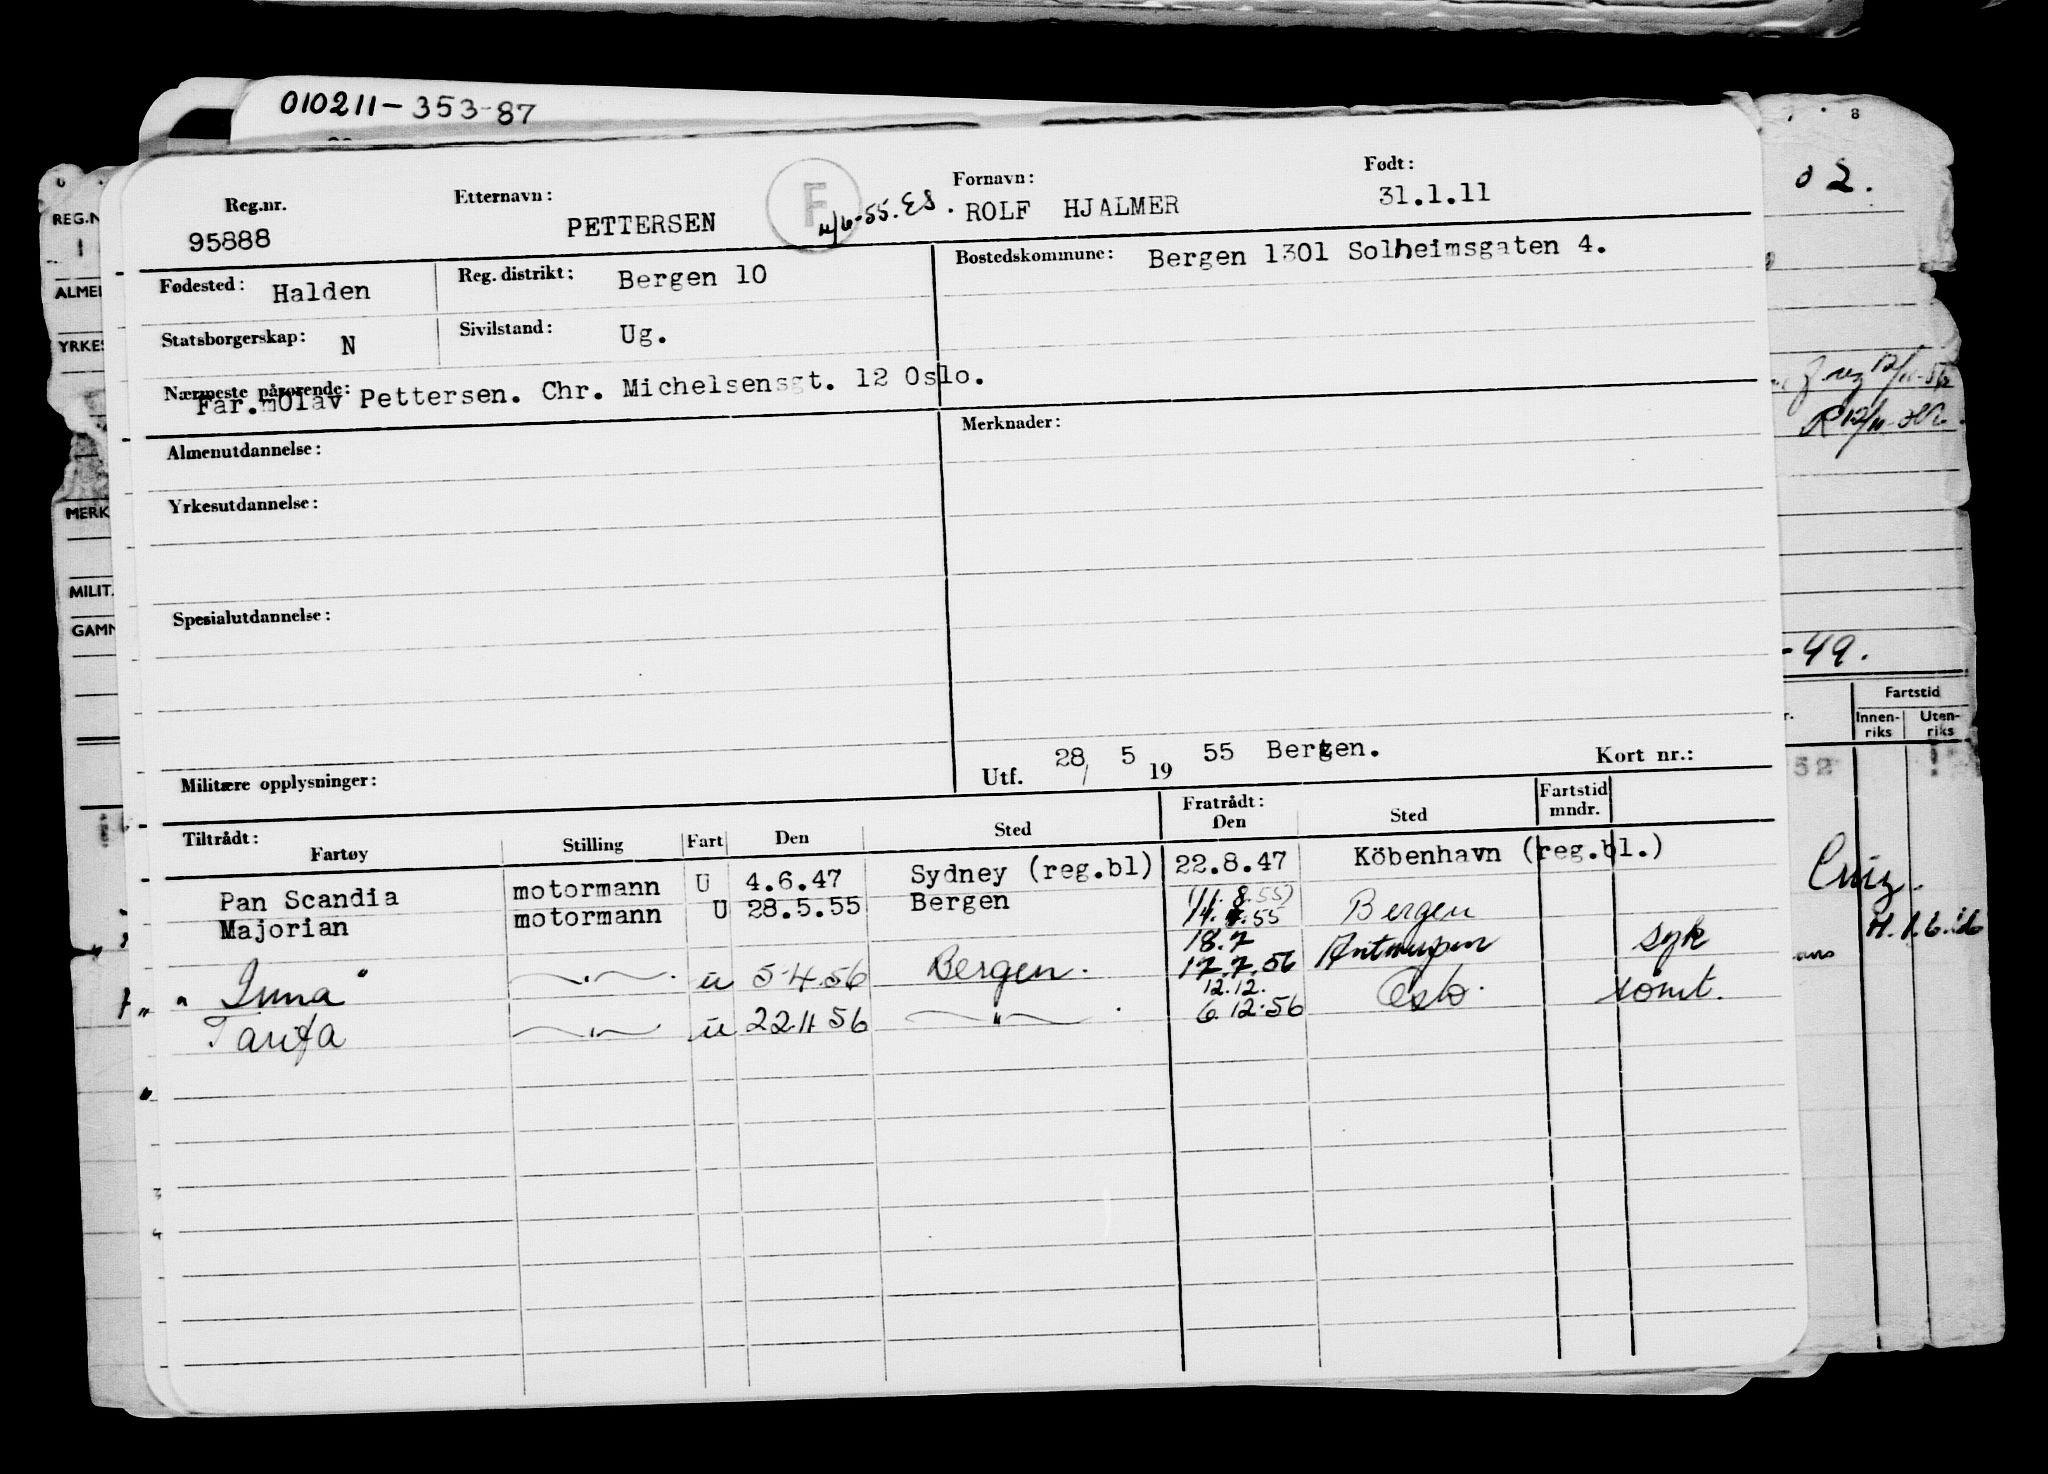 010211-353-87
8
02.
REG.N
ALMEN
YRKES
MERK
MILIT.
GAMM
Reg.nr. Etternavn: Fornavn: Født:
95888 PETTERSEN F 4/6-55. ES. ROLF HJALMER 31.1.11
Fødested: Halden Reg. distrikt: Bergen 10 Bostedskommune: Bergen 1301 Solheimsgaten 4.
Statsborgerskap: N Sivilstand: Ug.
Nærmeste pårørende:
Far.mOlav Pettersen. Chr. Michelsensgt. 12 Oslo.
Almenutdannelse: Merknader:
Yrkesutdannelse:
Spesialutdannelse:
-49.
Fartstid
Innen-riks Uten-riks
52
Militære opplysninger: Utf. 28/ 5 19 55 Bergen. Kort nr.:
Tiltrådt: Fratrådt: Fartstid mndr.
Fartøy Stilling Fart Den Sted Den Sted
Pan Scandia motormann U 4.6.47 Sydney (reg.bl) 22.8.47 Köbenhavn (reg.bl.)
(11.8.55)
Majorian motormann U 28.5.55 Bergen 14. .55 Bergen
18.7
" Inna " —"— u 5.4.56 Bergen. 17.7.56 Antwerpen syk
12.12.
Tarifa —"— u 22.11 56 —"— 6.12.56 Oslo. tømt.
H. 1.6.